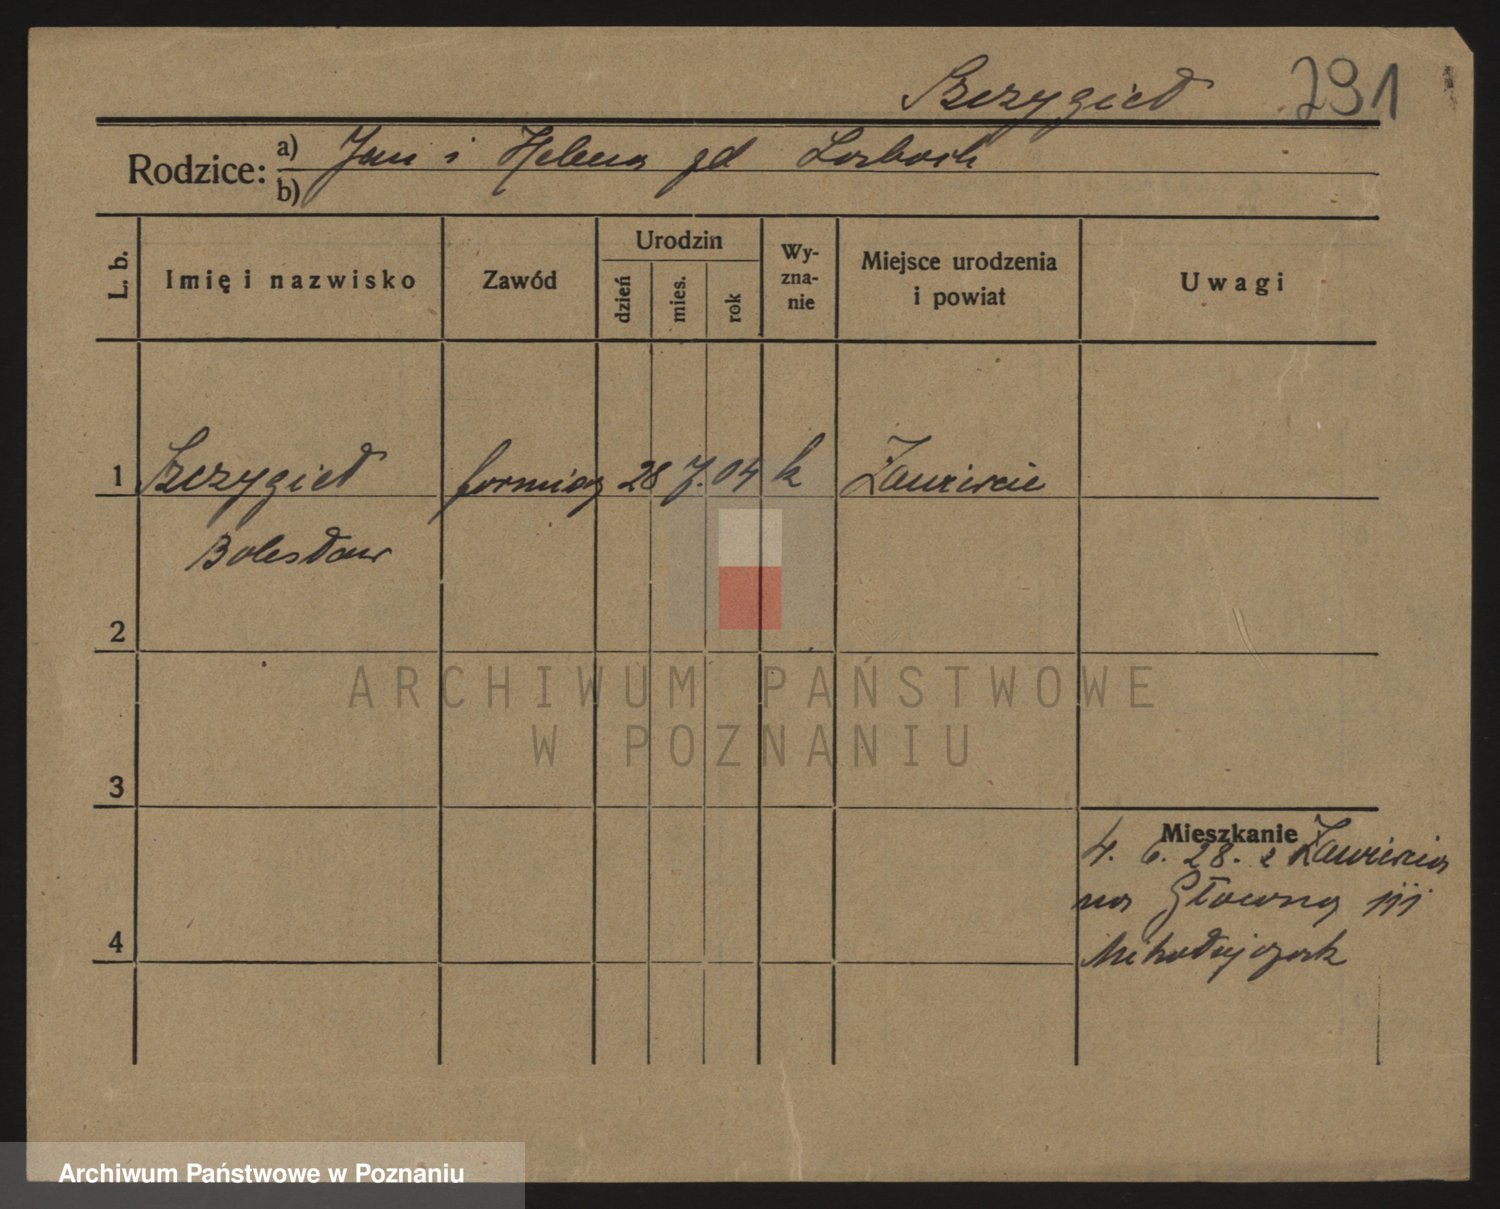 Szczygieł 291
Rodzice: a) Jan i Helena zd
b)
L. b.
Imię i nazwisko
Zawód
Urodzin
dzień
mies.
rok
Wy-
zna-
nie
Miejsce urodzenia
i powiat
Uwagi
1 Szczygieł formierz 28 7. 04 k Zawiercie
Bolesław
2
3
4
Mieszkanie
4. 6. 28. z Zawiercia
na Główną
Mikołajczak
ARCHIWUM PAŃSTWOWE
W POZNANIU
Archiwum Państwowe w Poznaniu